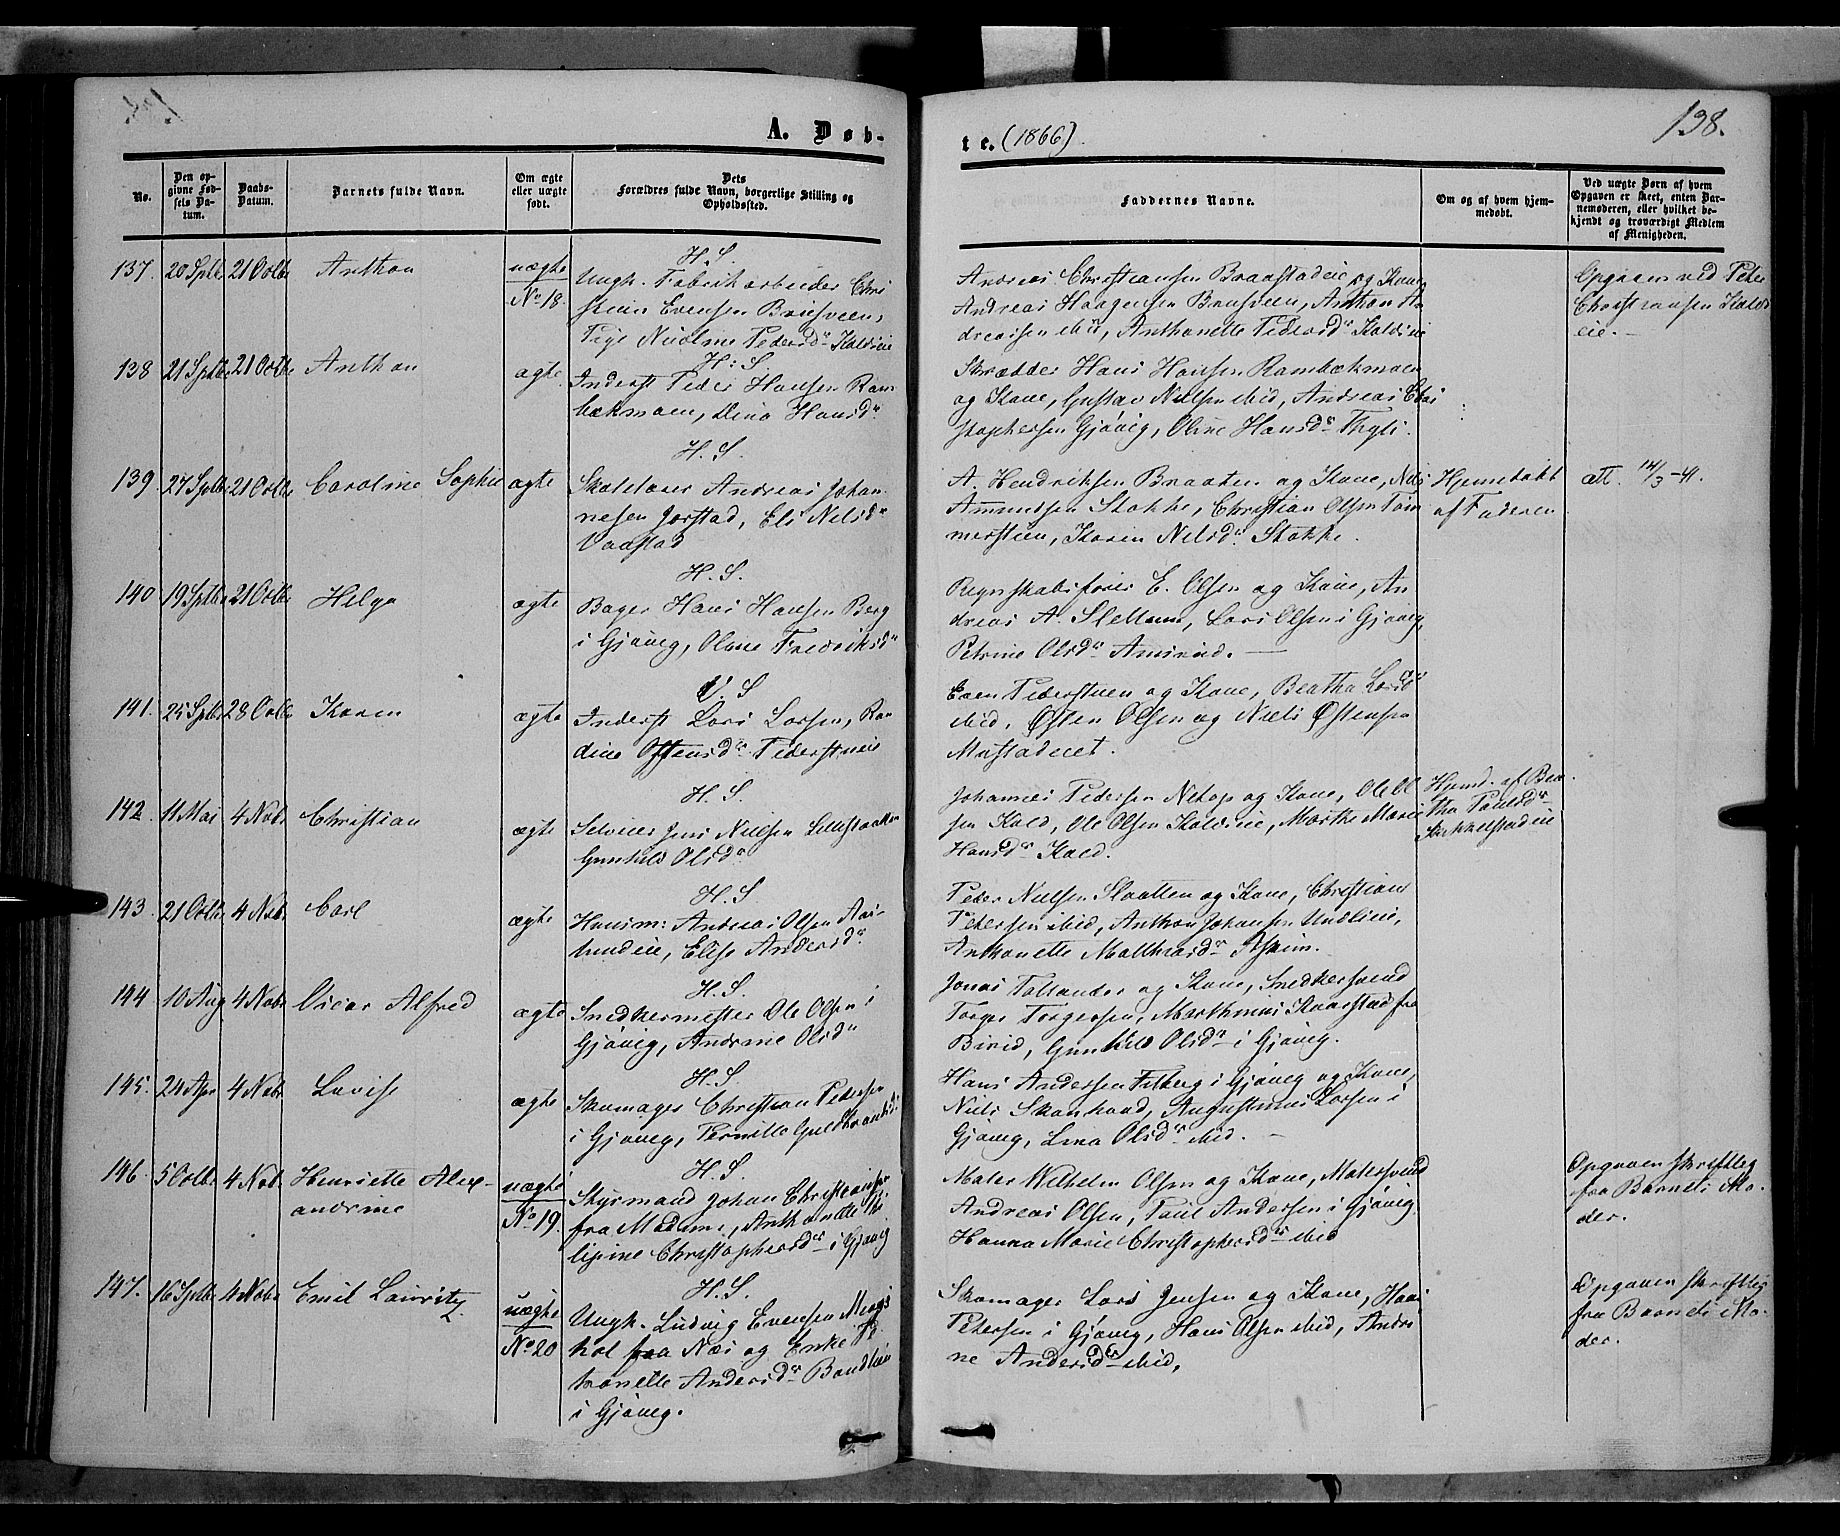 A. Døb-
te. (1866).
138.
No.
Den op-
givne Fød-
sels Da-
tum.
Daabs-
Datum.
Barnets fulde Navn.
Om ægte
eller uægte
født.
Dets
Forældres fulde Navn, borgerlige Stilling og
Opholdssted.
Faddernes Navne.
Om og af hvem hjem-
medøbt.
Ved uægte Børn af hvem
Opgaven er skeet, enten Bar-
nemoderen, eller hvilket be-
kjendt og troværdigt Medlem
af Menigheden.
137. 20 Sptb 21 Octbr Anthon uægte
No 18.
H. S.
Ungk. Fabrikarbeider Chri
stian Evensen
Pige Pedersdr
Andreas Christiansen Braastadeie og Kone
Andreas Haagensen Anthon An
dreassen ibid, Anthonette Pedersdr
Opgaven ved Peter
Christiansen
eie.
138 21 Sptbr 21 Octbr Anthon ægte
H. S.
Inderst Peder Hansen Ram
bækmoen, Dina Hansdr
Skrædder Hans Hansen Rambækmoen
og Kone, Gustav Nielsen ibid, Andreas Chri
stophersen Gjøvig, Oline Hansdr
139. 27 Sptbr 21 Octbr Caroline Sophie ægte
H. S.
Skolelærer Andreas Johan
nesen Jørstad, Eli Nelsdr
Vaastad
A. Hendriksen Braaten og Kone, Nils
Amundsen Stokke, Christian Olsen Tøm
merstien, Karen Nelsdr Stokke.
Hjemdøbt
af Faderen
att. 14/3-41.
140 19 Sptbr 21 Octbr Helga ægte
H. S.
Bager Hans Hansen Berg
i Gjøvig, Oline Fredriksdr
Regnskabsfører E. Olsen og Kone, An
dreas A. Lars Olsen i Gjøvig,
Petrine Olsdr
141. 25 Sptbr 28 Octbr Karen ægte
V. S
Inderst Lars Larsen, Ran
dine Østensdr Pederstueie
Even Pederstuen og Kone, Beatha Larsdr
ibid, Østen Olsen og Niels Østensen
Mustadeiet.
142. 11 Mai 4 Nvbr Christian ægte
H. S.
Selveier Jens Nielsen
Gunhild Olsdr
Johannes Pedersen Netop og Kone, Ole Ol
sen Kald, Ole Olsen Marthe Marie
Hansdr Kald.
Hjemd. af Bea-
tha Paulsdr
143. 21 Octbr 4 Nvbr Carl ægte
H. S
Huusm: Andreas Olsen
Elise Andersdr
Peder Nielsen Slaatten og Kone, Christian
Petersen ibid, Anthon Johansen
Anthonette Askim.
144 10 Aug 4 Nvbr Oscar Alfred ægte
H. S.
Snedkermester Ole Olsen i
Gjøvig, Andrine Olsdr
Jonas og Kone, Snedkersvend
Torger Torgersen, Mathias fra
Birid, Gunhild Olsdr i Gjøvig.
145. 24 Apr 4 Nvbr Lovise ægte
H. S.
Skomager Christian Pedersen
i Gjøvig, Pernille Guldbrandsdr
Hans Andersen i Gjøvig og Kone,
Niels Augustinus Larsen i
Gjøvig, Lina Olsdr ibid.
146. 5 Octbr 4 Nvbr Henriette Alex-
andrine
uægte
No 19.
H. S.
Styrmand Johan Christiansen
fra Anthonette
Christophersdr i Gjøvig
Maler Wilhelm Olsen og Kone, Malersvend
Andreas Olsen, Paul Andersen i Gjøvig
Hanna Marie Christophersdr ibid
Opgaven skriftlig
fra Barnets Mo-
der.
147. 16 Sptbr 4 Nvbr Emil Lauritz uægte
No 20
H. S.
Ungk. Ludvig Evensen
fra Næs og Enke
Andersdr
i Gjøvig.
Skomager Lars Jensen og Kone, Hans
Petersen i Gjøvig, Hans Olsen ibid, Andri
ne Andersdr ibid,
Opgaven skriftlig
fra Barnets Mo-
der.